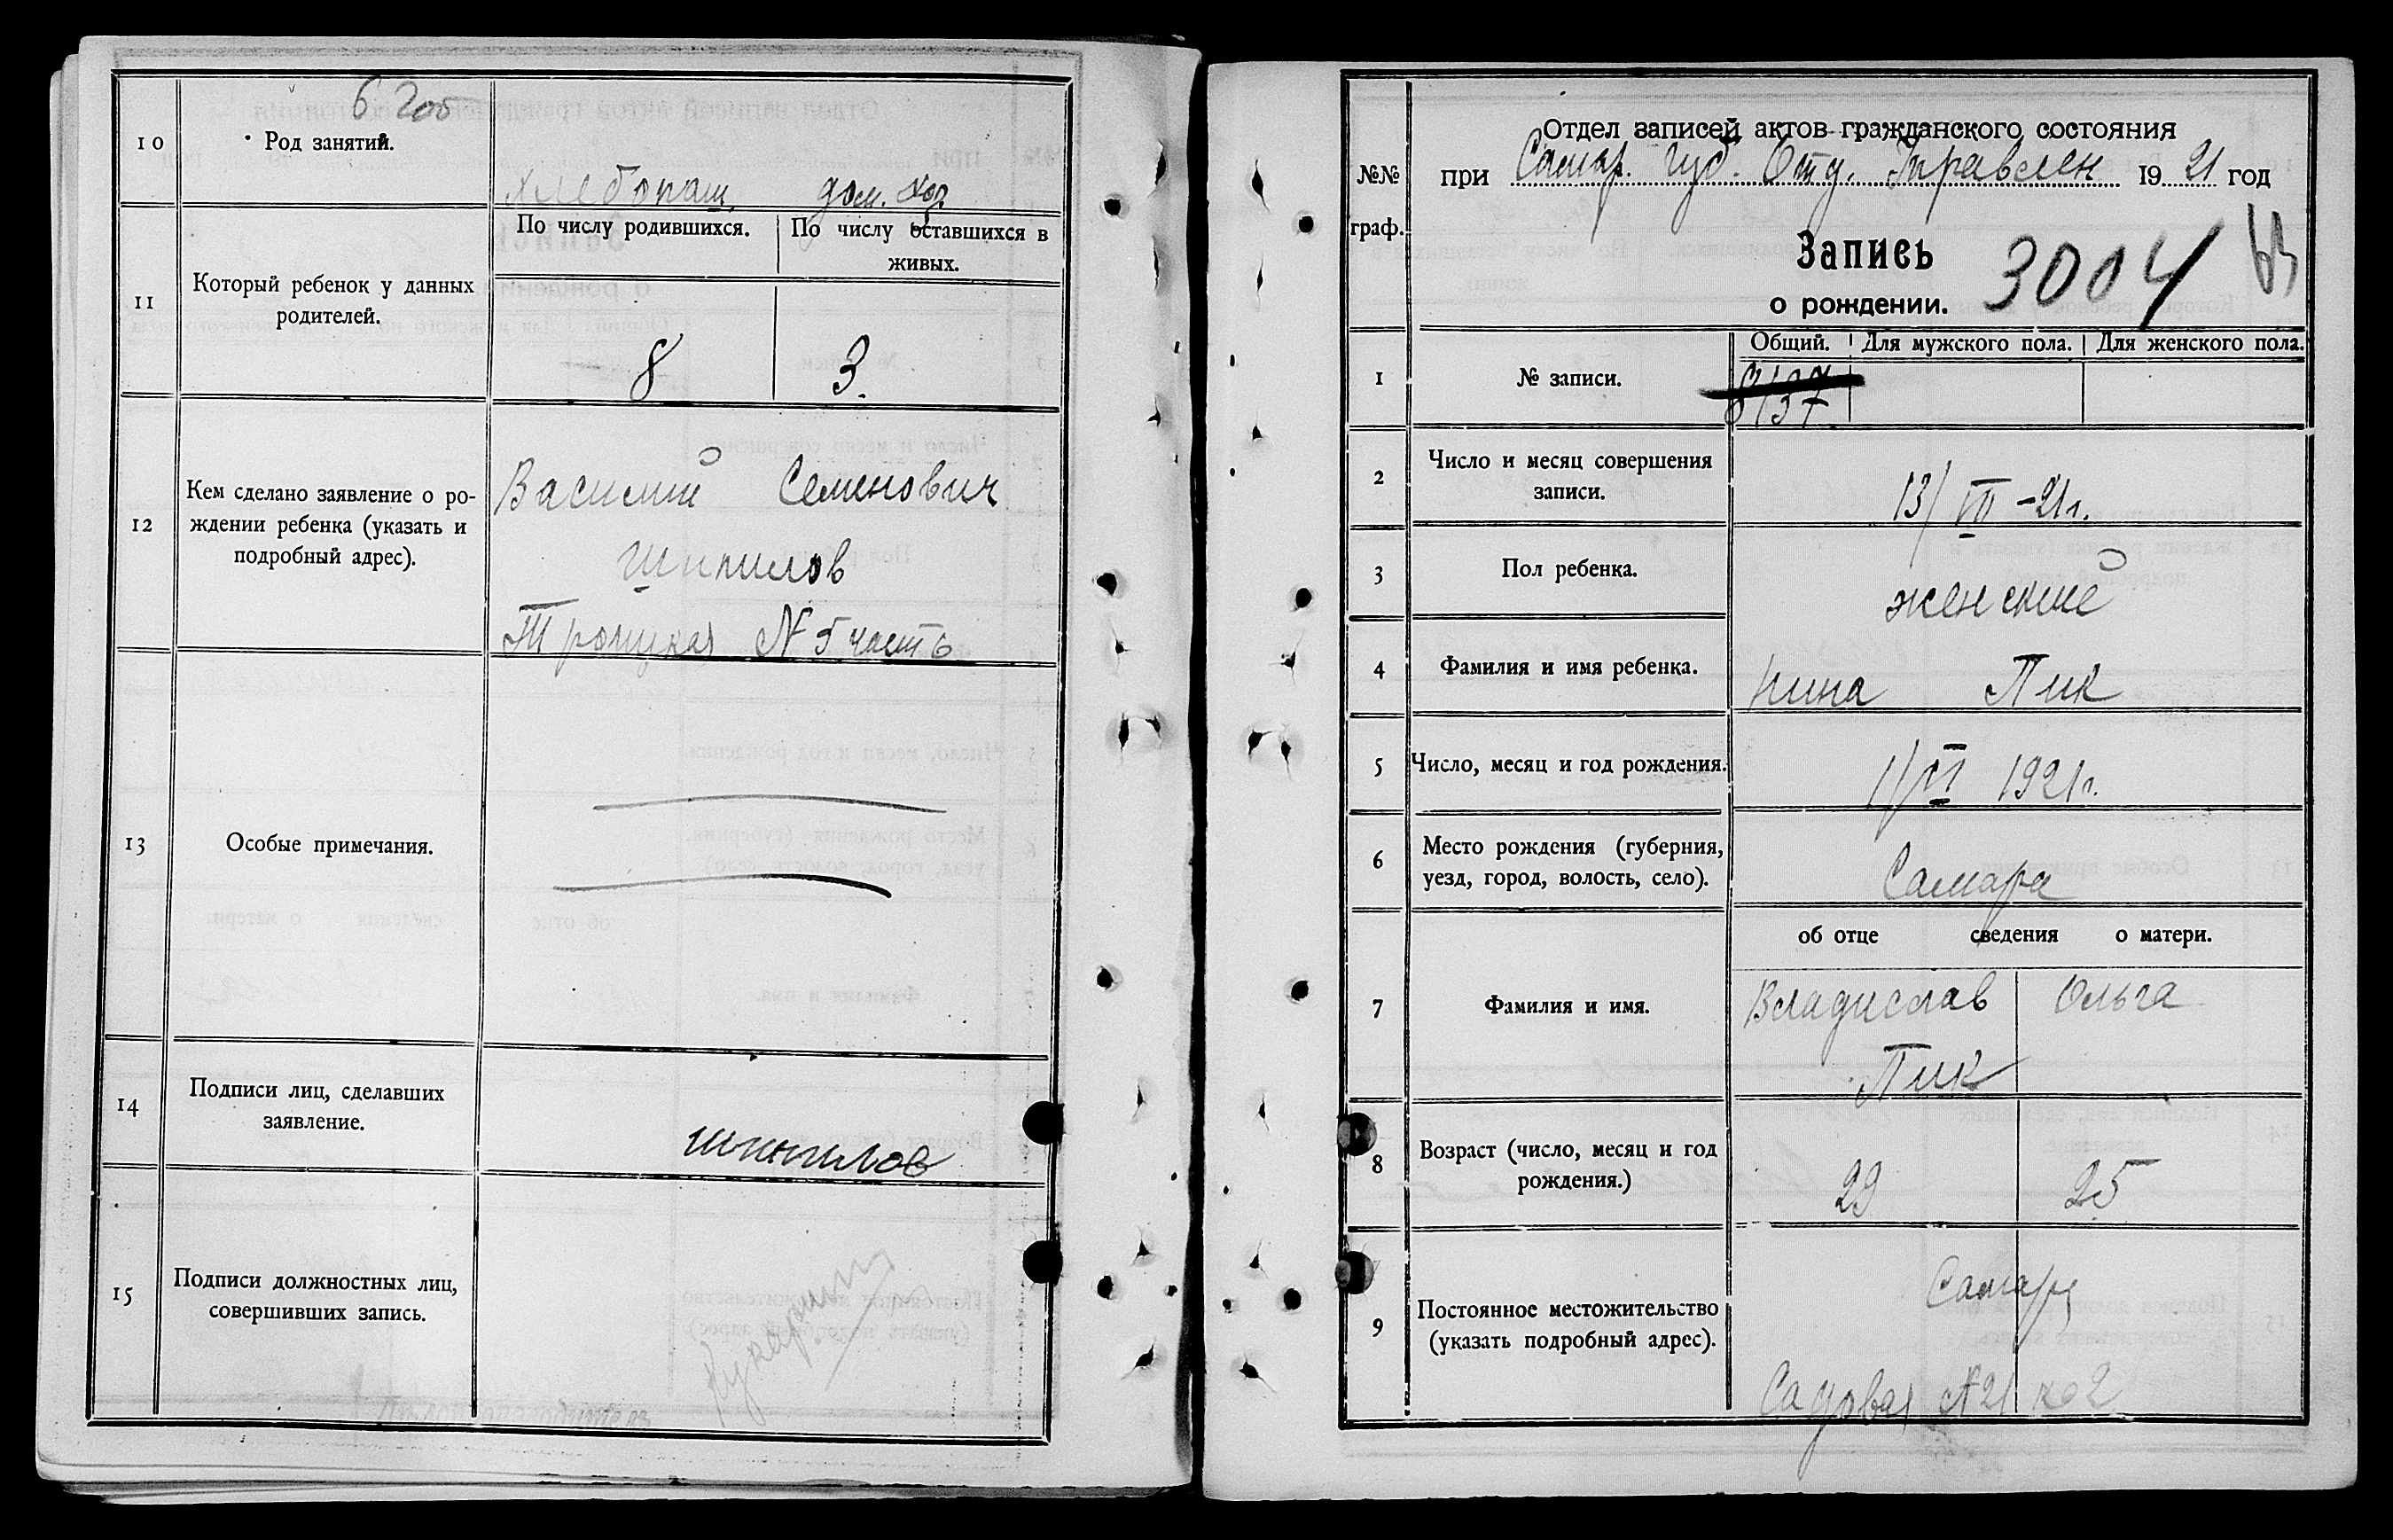 10
Род занятий.
хлебопаш. дом. хоз.
11
Который ребенок у данных
родителей.
По числу родившихся.
По числу оставшихся в
живых.
8
3.
12
Кем сделано заявление о ро-
ждении ребенка (указать и
подробный адрес).
Василий Семенович
Шипилов
Троицкая N 5 часть
13
Особые примечания.
14
Подписи лиц, сделавших
заявление.
Шипилов
15
Подписи должностных лиц,
совершивших запись.
№№
граф.
Отдел записей актов гражданского состояния
при Самар. Губ. Отд. Управлен 1921 год
Запись
о рождении.
3004
1
№ записи.
Общий.
Для мужского пола.
Для женского пола.
8137
2
Число и месяц совершения
записи.
13/VII-21г.
3
Пол ребенка.
женский
4
Фамилия и имя ребенка.
Нина Пик
5
Число, месяц и год рождения.
1/VI 1921г.
6
Место рождения (губерния,
уезд, город, волость, село).
Самара
об отце сведения о матери.
7
Фамилия и имя.
Владислав Ольга
Пик
8
Возраст (число, месяц и год
рождения.)
29
25
9
Постоянное местожительство
(указать подробный адрес).
Самара
Садовая N21 кв 2